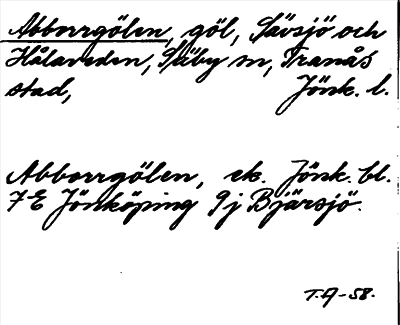 Abborrgölen, göl, Sävsjö och
Hålaveden, Säby sn, Tranås
stad, Jönk. l.
Abborrgölen, ek. Jönk. bl.
7E Jönköping 9j Bjärsjö.
T.A-58.